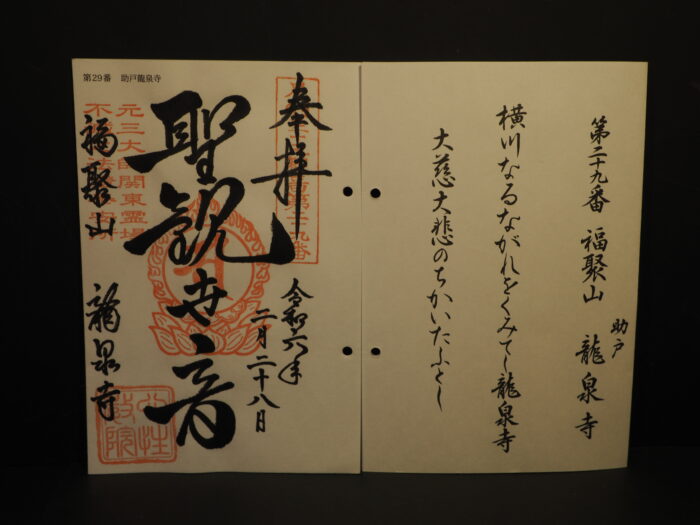 第二十九番 福聚山
助戸
龍泉寺
横川なるながれをくみてし龍泉寺
大慈大悲のちかいたふとし
第29番 助戸龍泉寺
奉拝
令和六年
二月二十八月
聖観世音
福聚山 龍泉寺
元三大師関東霊場